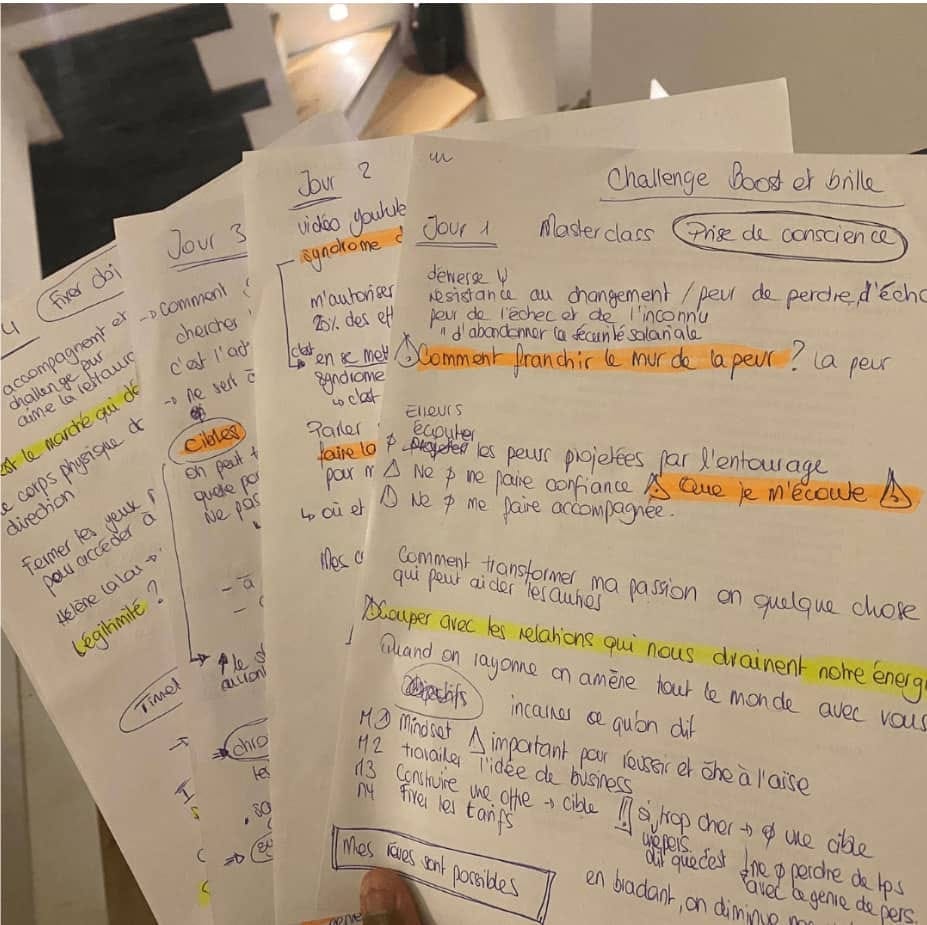 Challenge Boost et brille
Jour 1 Masterclass Prise de conscience
résistance au changement / peur de perdre, d'éch
peur de l'échec et de l'inconnu
" d'abandonner la sécurité salariale
Comment franchir le mur de la peur ? la peur
Erreurs
écouter
les peurs projetées par l'entourage
Ne ∅ me faire confiance ⚠ Que je m'écoute ⚠
Ne ∅ me faire accompagnée.
Comment transformer ma passion en quelque chose
qui peut aider les autres
Couper avec les relations qui nous drainent notre énergi
Quand on rayonne on amène tout le monde avec vous
Objectifs incarner ce qu'on dit
M1 Mindset ⚠ important pour réussir et être à l'aise
M2 travailler l'idée de business
M3 Construire une offre → cible !! si trop cher → ∅ une cible
M4 fixer les tarifs
dit que c'est
ne ∅ perdre de tps
avec ce genre de pers.
Mes rêves sont possibles
en bradant, on diminue
Jour 2
vidéo youtube
syndrome d
m'autoriser
20% des eff
c'est en se met
syndrome
↳ c'est
Parler
faire la
pour m
↳ où et
Mes c
Jour 3
→ comment
chercher
c'est l'act
→ ne sert à
cibles
on peut t
quelle por
Ne pas
- à
↑ le
chro
4 Fixer obj
accompagnent et
challenge pour
aime la restaur
est le marché qui dé
corps physique de
direction
Fermer les yeux
pour accéder à
Légitimité ?
Timel